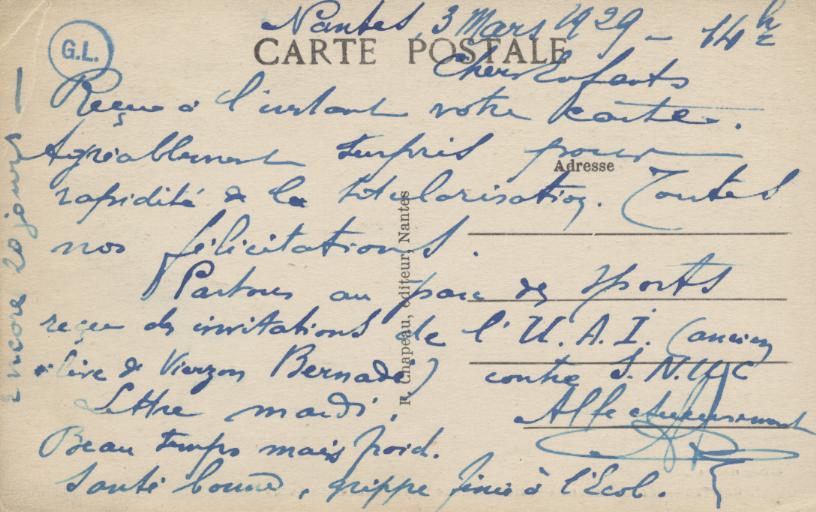 Nantes, 3 Mars 1929 - 14h
G.L.
CARTE POSTALE
Chers Enfants
Reçue à l'instant votre carte.
Agréablement surpris pour
Adresse
rapidité de la titularisation. Toutes
nos félicitations.
Partons au parc des sports
reçu des invitations de l'U.A.I. (ancien
élève de Vierzon Bernade) contre S.N.U.C
Lettre mardi.
Affectueusement
Beau temps mais froid.
Santé bonne, grippe finie à l'Ecole.
encore 20 jours -
F. Chapeau, éditeur, Nantes